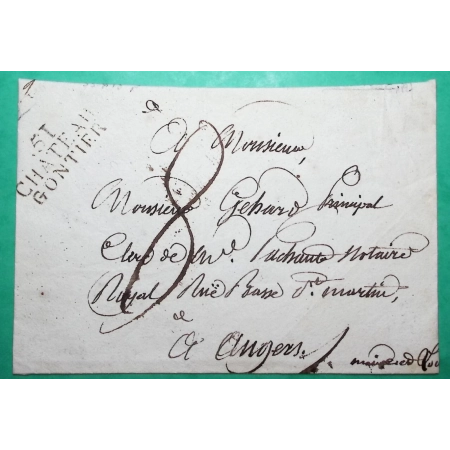 51
CHATEAU
GONTIER
A Monsieur,
Monsieur Gehard Principal
Clerc de Me. Lachaute Notaire
Royal Rüe Basse St. martin,
8
A Angers.